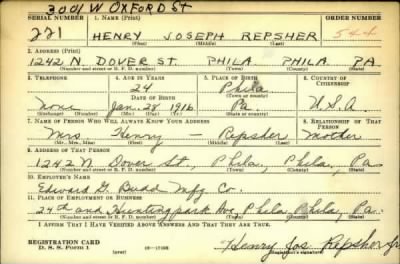 3001 W OXFORD ST
SERIAL NUMBER 1. NAME (Print) ORDER NUMBER
221 HENRY JOSEPH REPSHER 544
(First) (Middle) (Last)
2. ADDRESS (Print)
1242 N. DOVER ST. PHILA. PHILA. PA
(Number and street or R. F. D. number) (Town) (County) (State)
3. TELEPHONE 4. AGE IN YEARS 5. PLACE OF BIRTH 6. COUNTRY OF CITIZENSHIP
24 Phila
DATE OF BIRTH (Town or county)
None Jan. 28 1916 Pa U.S.A.
(Exchange) (Number) (Mo.) (Day) (Yr.) (State or country)
7. NAME OF PERSON WHO WILL ALWAYS KNOW YOUR ADDRESS 8. RELATIONSHIP OF THAT PERSON
Mrs. Henry — Repsher Mother
(Mr., Mrs., Miss) (First) (Middle) (Last)
9. ADDRESS OF THAT PERSON
1242 N Dover St., Phila., Phila., Pa
(Number and street or R. F. D. number) (Town) (County) (State)
10. EMPLOYER'S NAME
Edward G. Budd Mfg. Co.
11. PLACE OF EMPLOYMENT OR BUSINESS
24th and Hunting park Ave Phila Phila, Pa.
(Number and street or R. F. D. number) (Town) (County) (State)
I AFFIRM THAT I HAVE VERIFIED ABOVE ANSWERS AND THAT THEY ARE TRUE.
REGISTRATION CARD
D. S. S. FORM 1 (over) Henry Jos Repsher Jr
(Registrant's signature)